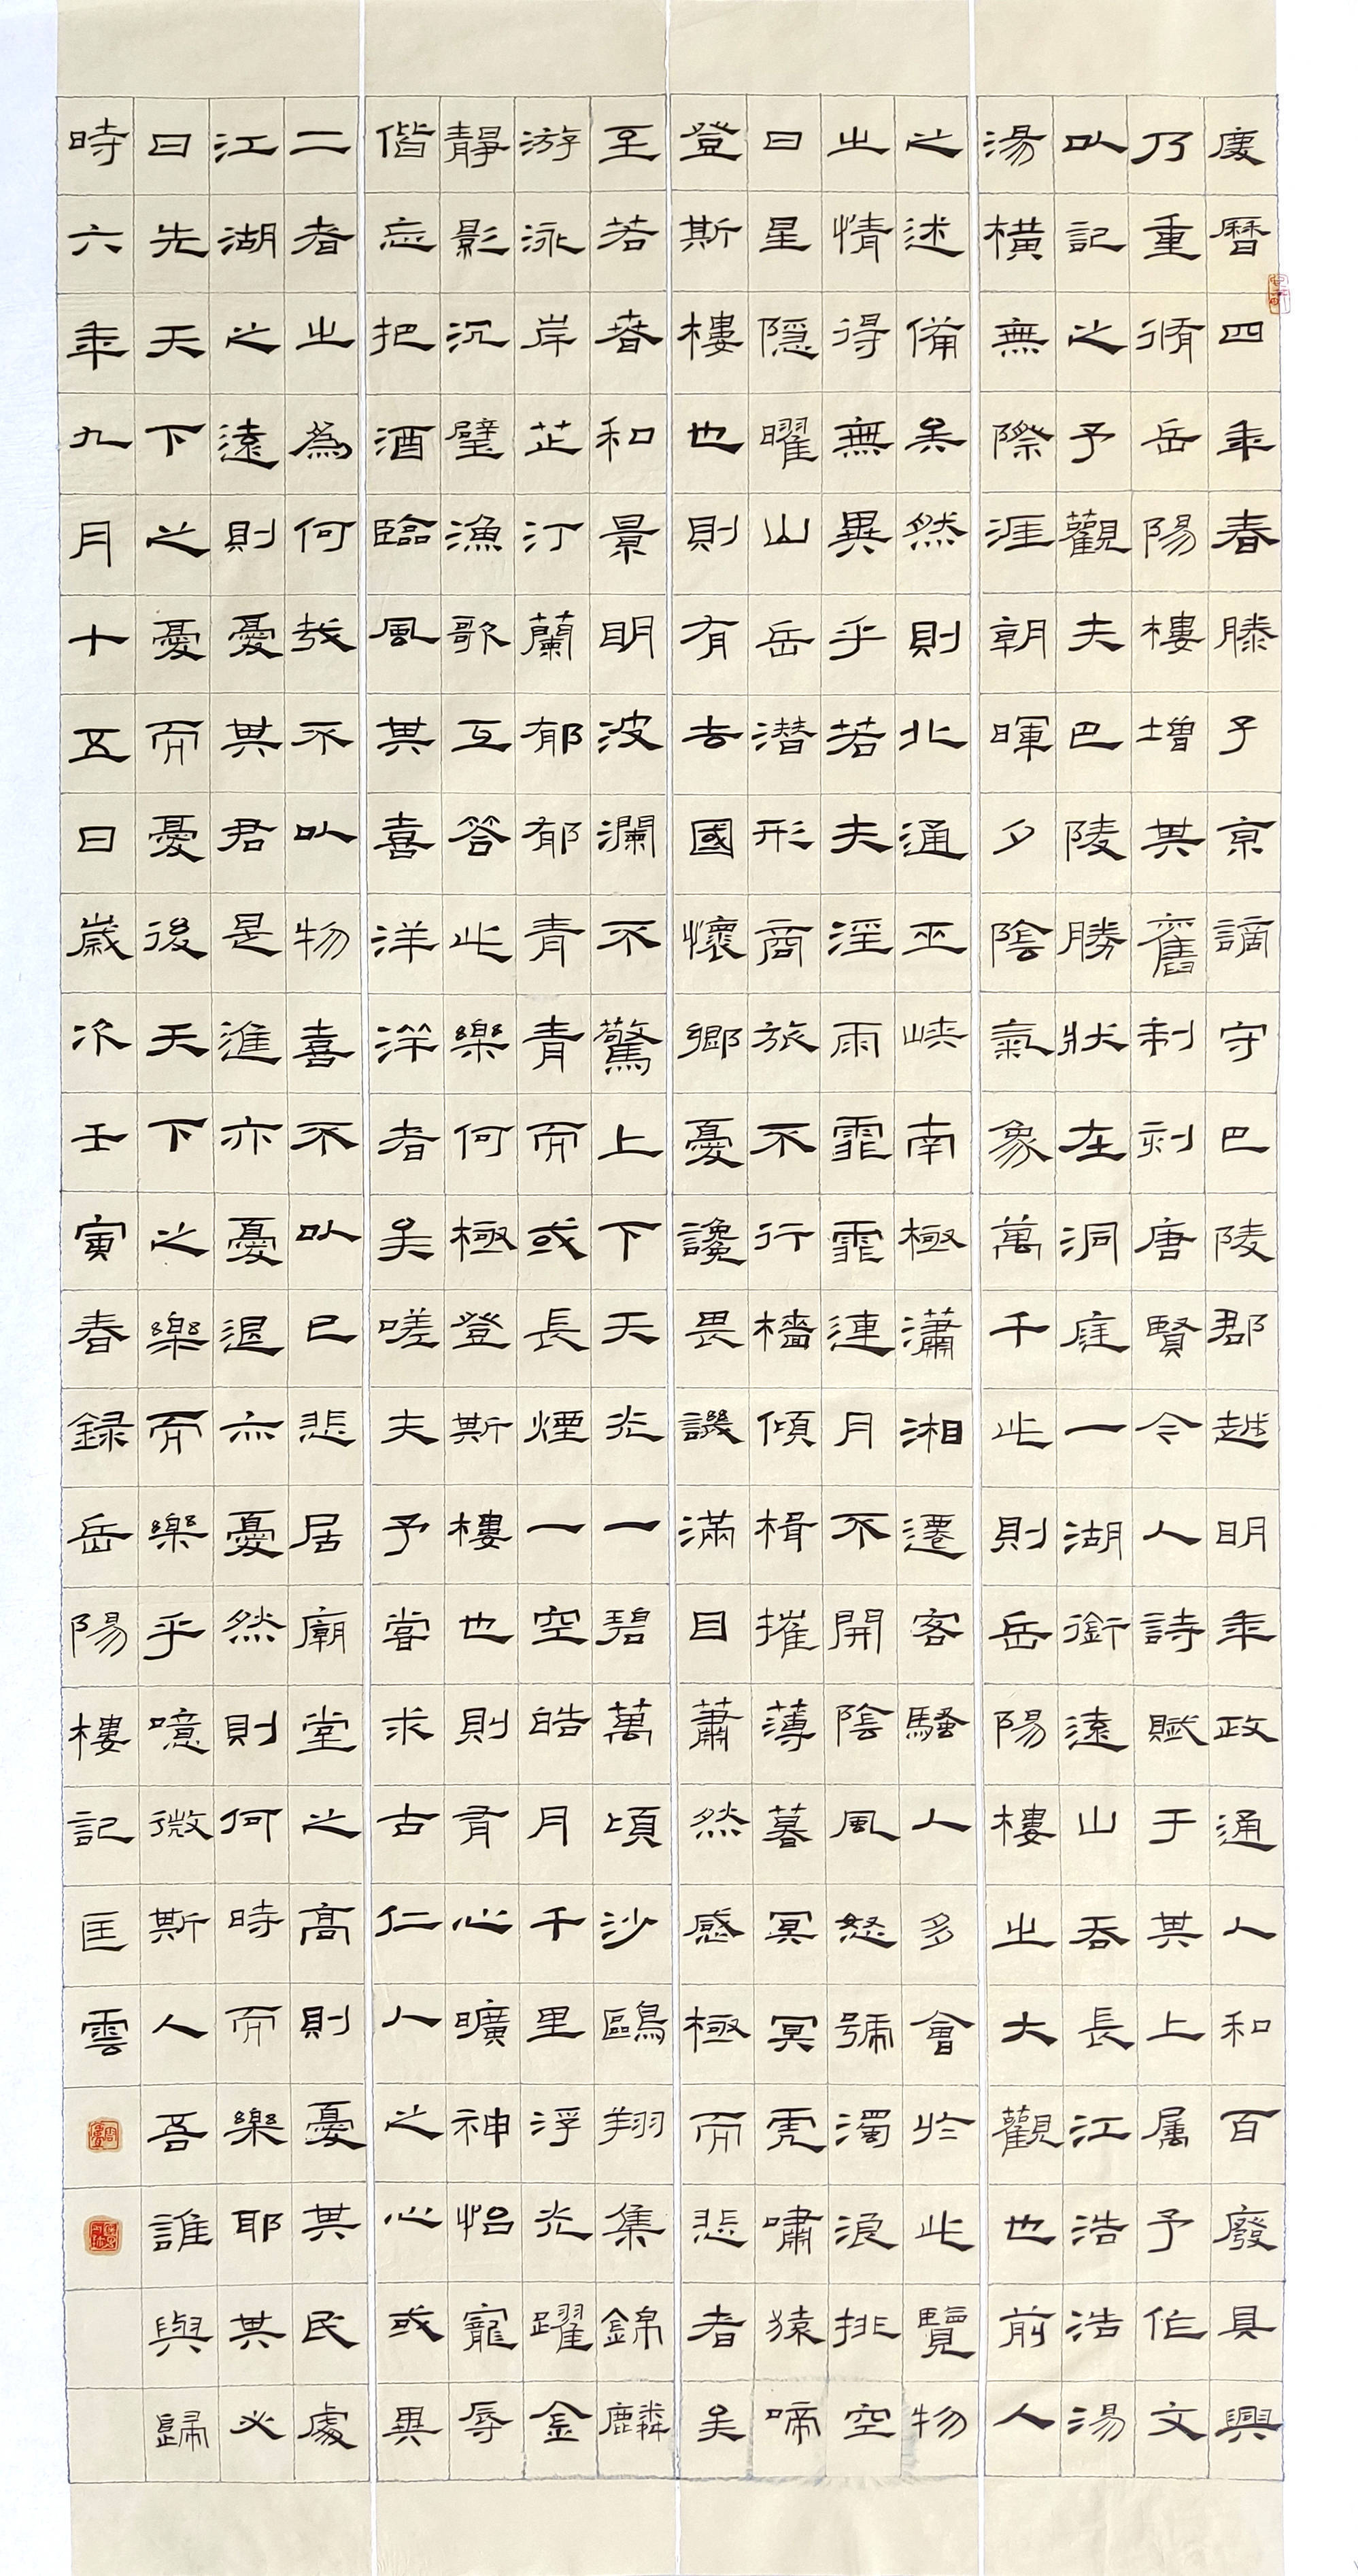 慶曆四年春滕子京謫守巴陵郡越明年政通人和百廢具興
乃重脩岳陽樓增其舊制刻唐賢令人詩賦于其上属予作文
以記之予觀夫巴陵勝狀在洞庭一湖銜遠山吞長江浩浩湯
湯橫無際涯朝暉夕陰氣象萬千此則岳陽樓之大觀也前人
之述備矣然則北通巫峽南極瀟湘遷客騷人多會於此覽物
之情得無異乎若夫淫雨霏霏連月不開陰風怒號濁浪排空
日星隱曜山岳潛形商旅不行檣傾楫摧薄暮冥冥虎嘯猿啼
登斯樓也則有去國懷鄉憂讒畏譏滿目蕭然感極而悲者矣
至若春和景明波瀾不驚上下天光一碧萬頃沙鷗翔集錦麟
游泳岸芷汀蘭郁郁青青而或長煙一空皓月千里浮光躍金
靜影沉璧漁歌互答此樂何極登斯樓也則有心曠神怡寵辱
偕忘把酒臨風其喜洋洋者矣嗟夫予嘗求古仁人之心或異
二者之為何哉不以物喜不以己悲居廟堂之高則憂其民處
江湖之遠則憂其君是進亦憂退亦憂然則何時而樂耶其必
曰先天下之憂而憂後天下之樂而樂乎噫微斯人吾誰與歸
時六年九月十五日歲次壬寅春録岳陽樓記匡雲